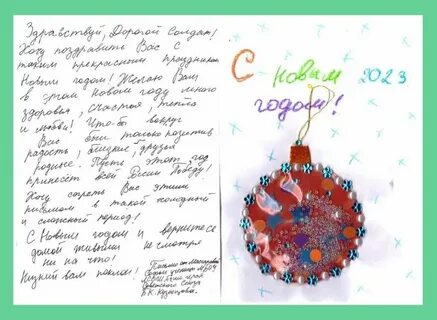 Здравствуй, Дорогой Солдат!
Хочу поздравить Вас с
таким прекрасным праздником
Новым годом! Желаю Вам
в этом новом году много
здоровья, счастья, тепла
и любви! Что-бы вокруг
Вас был только позитив
радость, близкие, друзья
родные. Пусть этот год
принесёт всей России Победу!
Хочу согреть Вас этим
письмом в такой холодный
и сложный период!
С Новым годом и вернитесь
домой живыми не смотря
ни на что!
Низкий вам поклон!
Письмо от
Советского Союза
С новым 2023
годом!